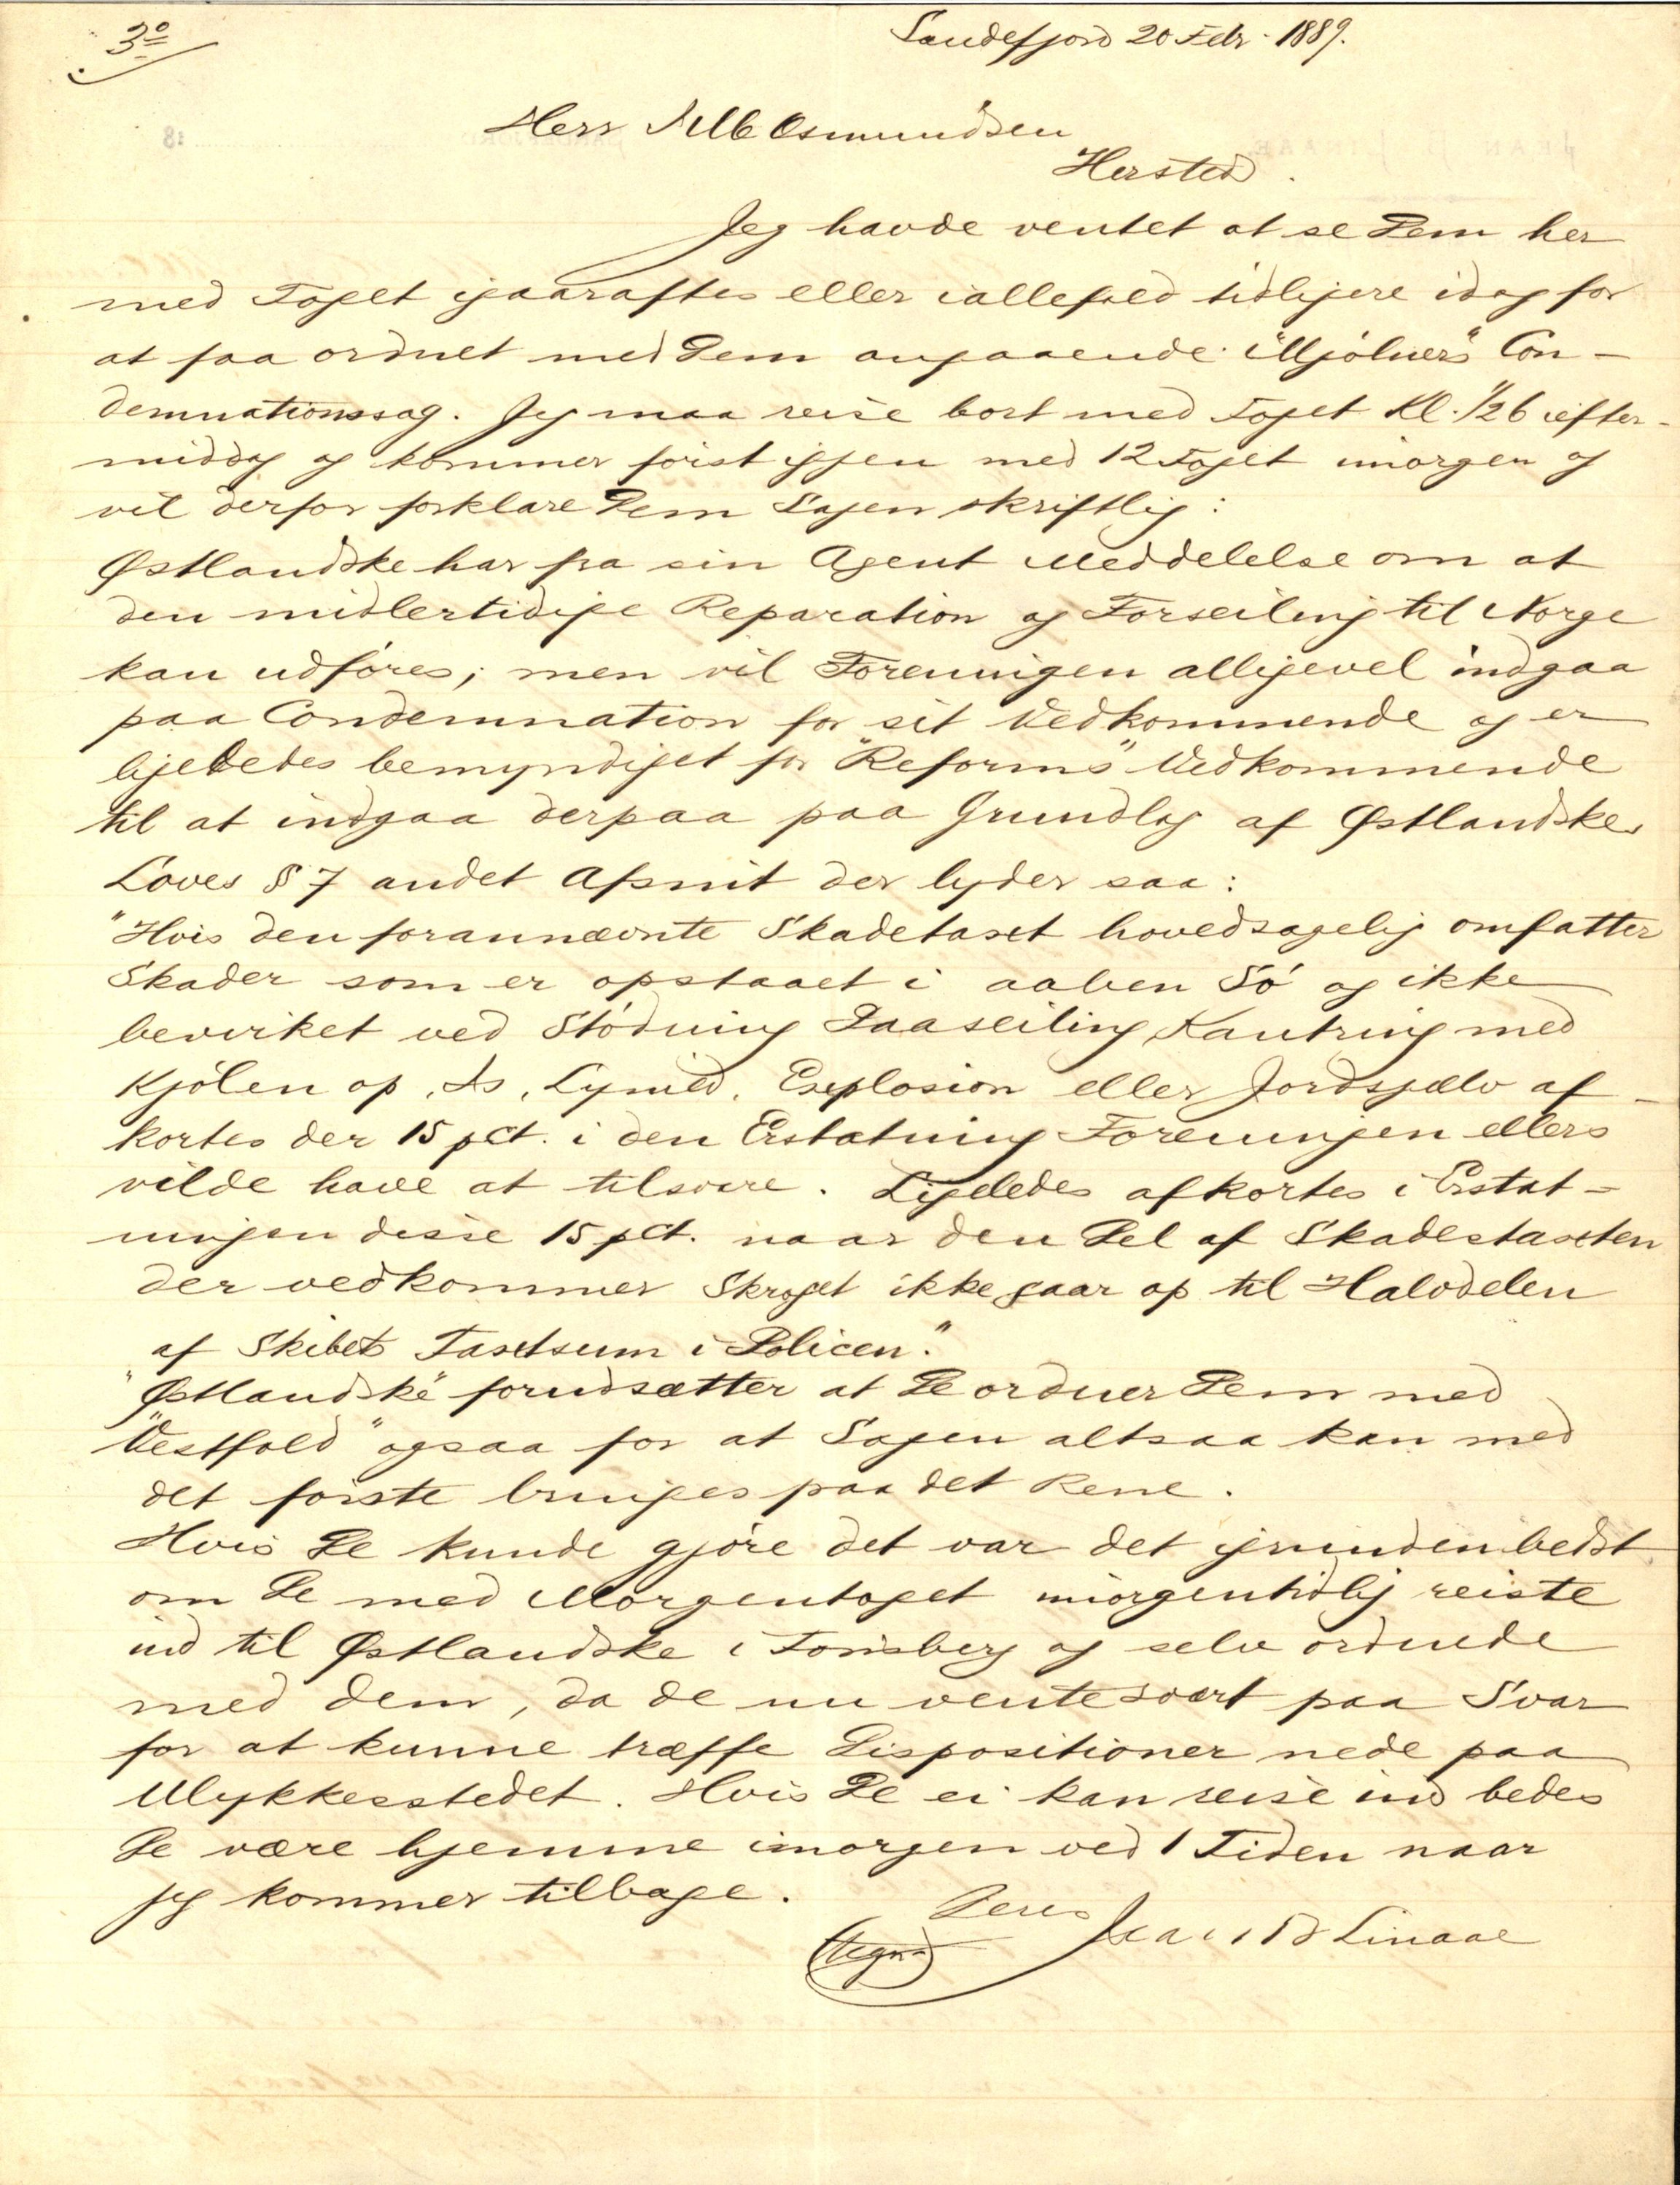 3º
Sandefjord 20 Febr. 1889.
Herr Osmundsen
Hersted.
Jeg havde ventet at se Dem her
med Toget igaaraftes eller iallefald tidligere idag for
at faa ordnet med Dem angaaende "Mjølner's" Con-
demnationssag. Jeg maa reise bort med Toget Kl. ½6 iefter-
middag og kommer først igjen med 12 Toget imorgen og
vil derfor forklare Dem Sagen skriftlig:
Østlandske har fra sin Agent Meddelelse om at
den midlertidige Reparation og Forseiling til Norge
kan udføres; men vil Foreningen alligevel indgaa
paa Condemnation for sit Vedkommende og er
ligeledes bemyndiget for "Reforms" Vedkommende
til at indgaa derpaa paa Grundlag af Østlandskes
Loves § 7 andet Afsnit der lyder saa:
"Hvis den forannævnte Skadetaxt hovedsagelig omfatter
Skader som er opstaaet i aaben Sø og ikke
bevirket ved Stødning Paaseiling, Kantring med
Kjølen op, Is, Lynild, Explosion eller Jordskjælv af-
kortes der 15 pct. i den Erstatning Foreningen ellers
vilde have at tilsvare. Ligeledes afkortes i Erstat-
ningen disse 15 pct. naar den Del af Skadestaxten
der vedkommer Skroget ikke gaar op til Halvdelen
af Skibets Taxtsum i Policen."
"Østlandske" forudsætter at De ordner Dem med
"Vestfold" ogsaa for at Sagen altsaa kan med
det første bringes paa det Rene.
Hvis De kunde gjøre det var det igrunden bedst
om De med Morgentoget imorgentidlig reiste
ind til Østlandske i Tønsberg og selv ordnede
med dem, da de nu vente svart paa Svar
for at kunne træffe Dispositioner nede paa
Ulykkesstedet. Hvis De ei kan reise ind bedes
De være hjemme imorgen ved 1 Tiden naar
jeg kommer tilbage.
Deres
(tegn.) Jean B Linaae